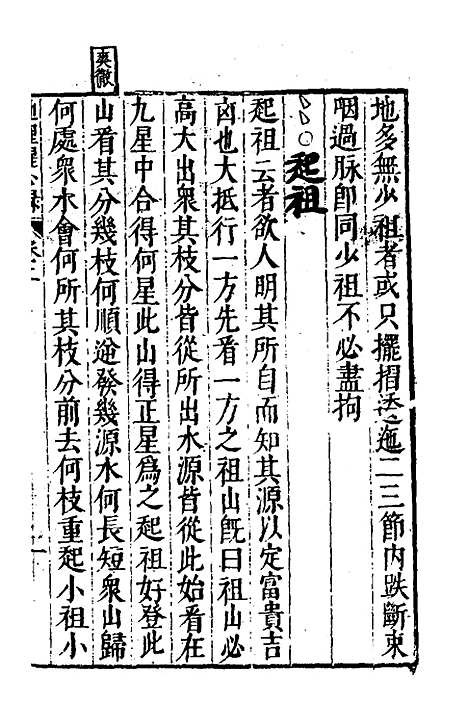 地多無少祖者或只擺摺逶迤二三節內跌斷束
咽過脉即同少祖不必盡拘
起祖
起祖云者欲人明其所自而知其源以定富貴吉
凶也大抵行一方先看一方之祖山旣曰祖山必
高大出衆其枝分皆從所出水源皆從此始看在
九星中合得何星此山得正星爲之起祖好登此
山看其分幾枝何順逆發幾源水何長短衆山歸
何處衆水會何所其枝分前去何枝重起小祖小
爽徹